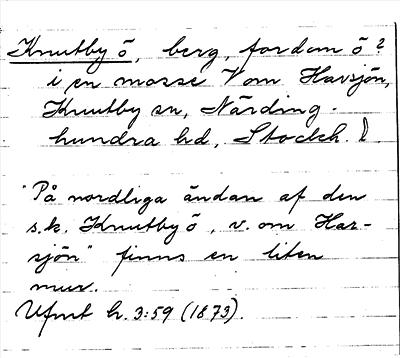 Knutby ö, berg, fordom ö?
i en mosse V om Harsjön,
Knutby sn, Närding-
hundra hd, Stockh. l
"På nordliga ändan af den
s.k. Knutby ö, v. om Har-
sjön" finns en liten
mur.
Ufmt h. 3:59 (1873).